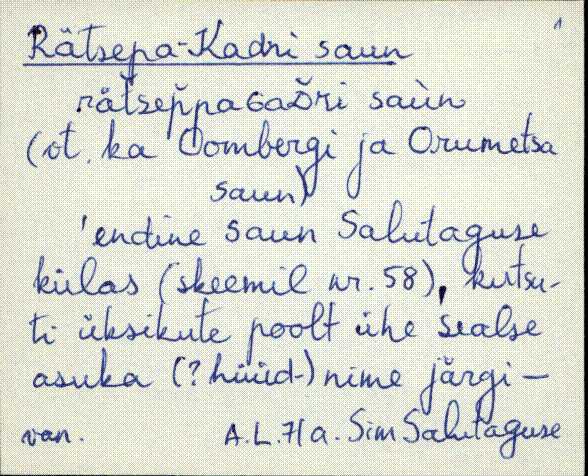 1
Rätsepa-Kadri saun
rätsep̆paGaD̆ri saùn
(vt. ka Oombergi ja Orumetsa
saun)
'endine saun Salutaguse
külas (skeemil nr. 58), kutsu-
ti üksikute poolt ühe sealse
asuka (? hüüd-) nime järgi –
van. A.L. 71a. Sim Salutaguse